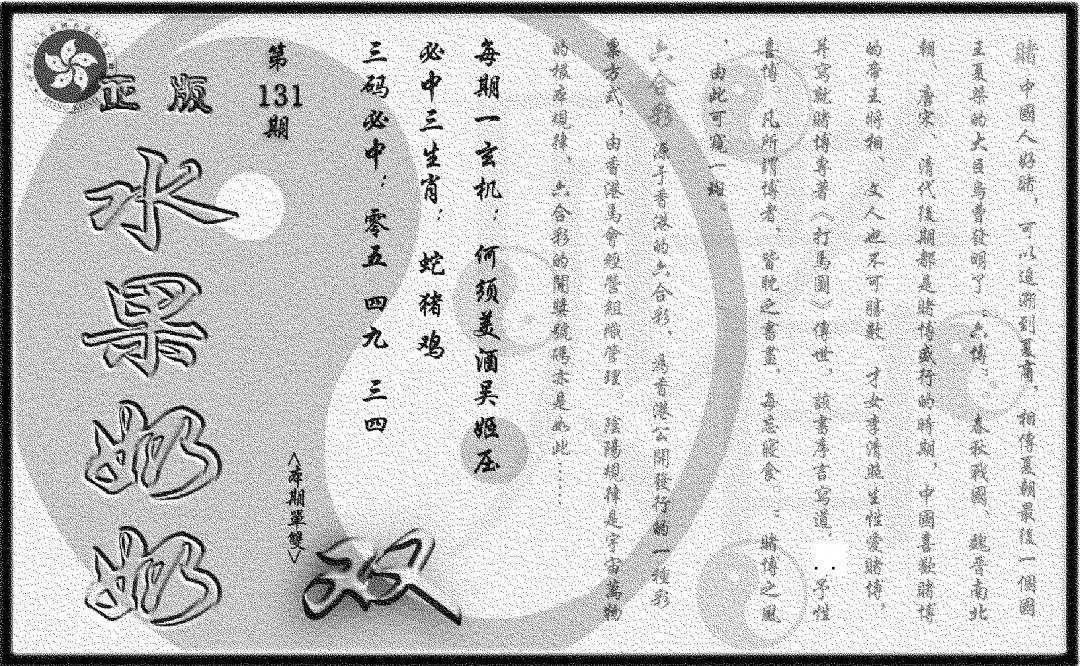 賭 中國人好賭，可以追溯到夏商，相傳夏朝最後一個國
王夏桀的大臣烏曹發明了“六博”。春秋戰國、魏晋南北
朝、唐宋、清代後期都是賭博盛行的時期，中國喜歡賭博
的帝王將相、文人也不可勝數，才女李清照生性愛賭博，
并寫就賭博專著《打馬圖》傳世，該書序言寫道：予性
喜博，凡所謂博者，皆耽之晝夜，每忘寢食。：賭博之風
，由此可窺一斑。
六合彩 源于香港的六合彩，為香港公開發行的一種彩
票方式，由香港馬會經營組織管理。陰陽規律是宇宙萬物
的根本規律，六合彩的開獎號碼亦是如此……
每期一玄机：何须美酒吴姬压
必中三生肖：蛇猪鸡
三码必中：零五 四九 三四
第
131
期
<本期單雙>
双
正版
水果奶奶